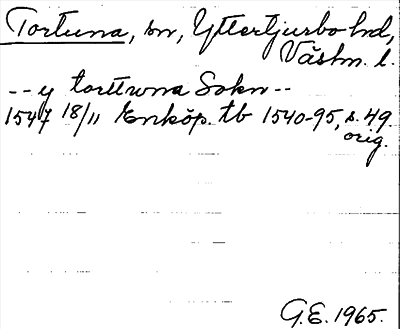 Tortuna, sn, Yttertjurbo hd,
Västm. l.
-- y torttwna Sokn --
1547 18/11 Enköp. tb 1540-95, s. 49.
orig.
G.E. 1965.